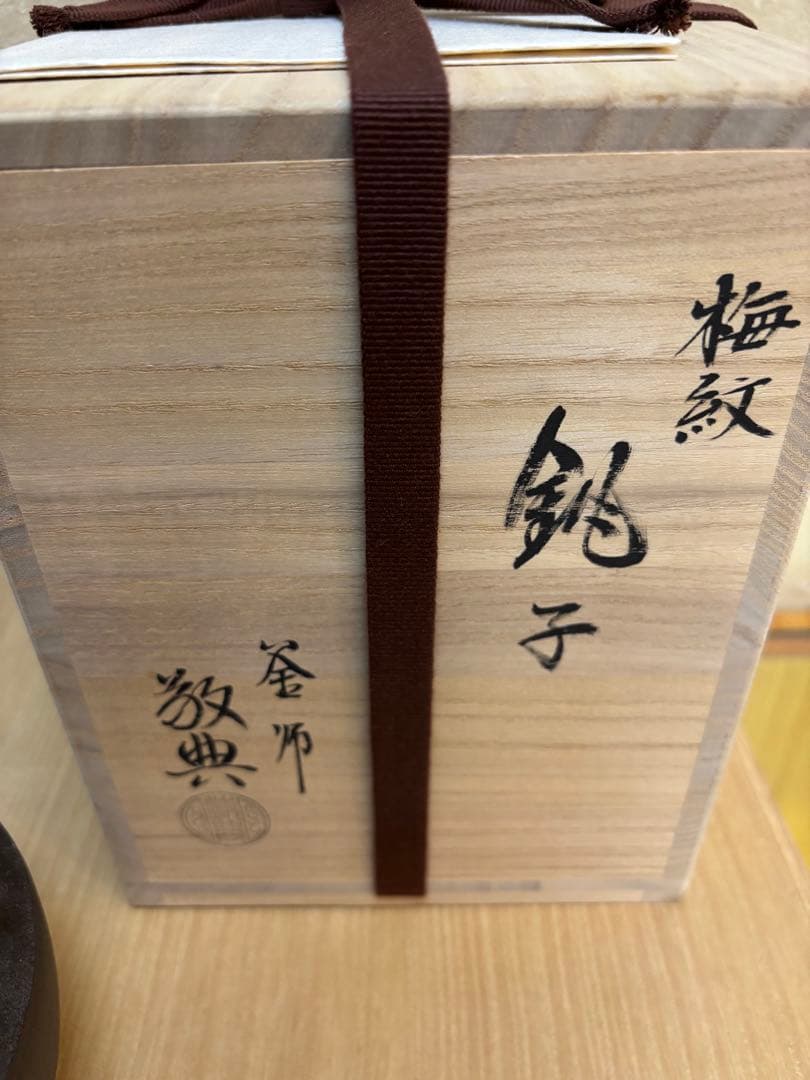 梅紋
銚子
釜师
敬典